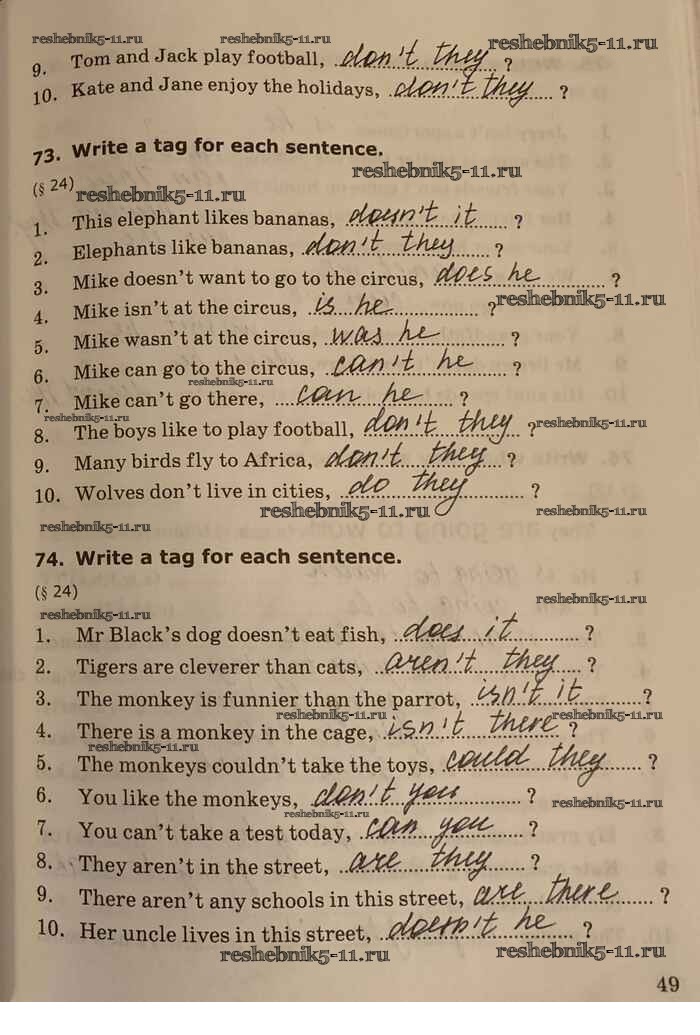 reshebnik5-11.ru reshebnik5-11.ru reshebnik5-11.ru
9. Tom and Jack play football, don't they ?
10. Kate and Jane enjoy the holidays, don't they ?
73. Write a tag for each sentence.
reshebnik5-11.ru
(§ 24) reshebnik5-11.ru
1. This elephant likes bananas, doesn't it ?
2. Elephants like bananas, don't they ?
3. Mike doesn't want to go to the circus, does he ?
4. Mike isn't at the circus, is he ? reshebnik5-11.ru
5. Mike wasn't at the circus, was he ?
6. Mike can go to the circus, can't he ?
reshebnik5-11.ru
7. Mike can't go there, can he ?
reshebnik5-11.ru
8. The boys like to play football, don't they ? reshebnik5-11.ru
9. Many birds fly to Africa, don't they ?
10. Wolves don't live in cities, do they ?
reshebnik5-11.ru reshebnik5-11.ru
reshebnik5-11.ru
74. Write a tag for each sentence.
(§ 24)
reshebnik5-11.ru
reshebnik5-11.ru
1. Mr Black's dog doesn't eat fish, does it ?
2. Tigers are cleverer than cats, aren't they ?
3. The monkey is funnier than the parrot, isn't it ?
reshebnik5-11.ru reshebnik5-11.ru
4. There is a monkey in the cage, isn't there ?
reshebnik5-11.ru
5. The monkeys couldn't take the toys, could they ?
6. You like the monkeys, don't you ? reshebnik5-11.ru
reshebnik5-11.ru
7. You can't take a test today, can you ?
8. They aren't in the street, are they ?
9. There aren't any schools in this street, are there ?
10. Her uncle lives in this street, doesn't he ?
reshebnik5-11.ru reshebnik5-11.ru
49